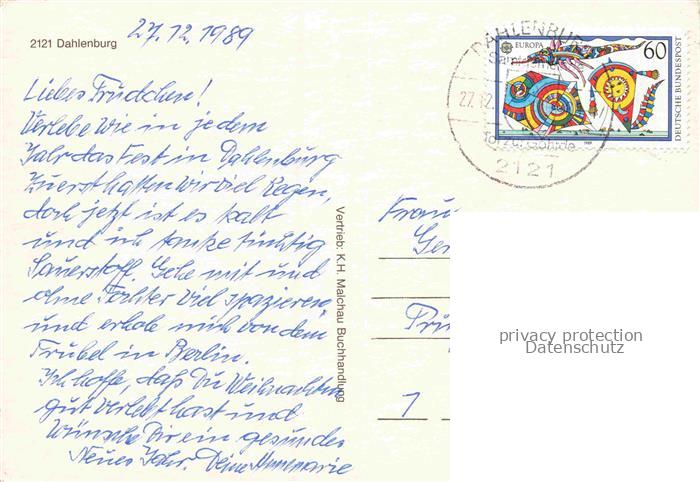 2121 Dahlenburg
27.12.1989
Liebes Trudchen!
Verlebe wie in jedem
Jahr das Fest in Dahlenburg
Zuerst hatten wir viel Regen,
doch jetzt ist es kalt
und ich tanke tüchtig
Sauerstoff. Gehe mit und
ohne Tochter viel spazieren,
und erhole mich von dem
Trubel in Berlin.
Ich hoffe, daß Du Weihnachten
gut verlebt hast und
Wünsche Dir ein gesundes
Neues Jahr. Deine Annemarie
Vertrieb: K.H. Malchau Buchhandlung
DAHLENBURG
27.12
Tor zur Göhrde
2121
EUROPA
60
DEUTSCHE BUNDESPOST
1989
Frau
1
privacy protection
Datenschutz